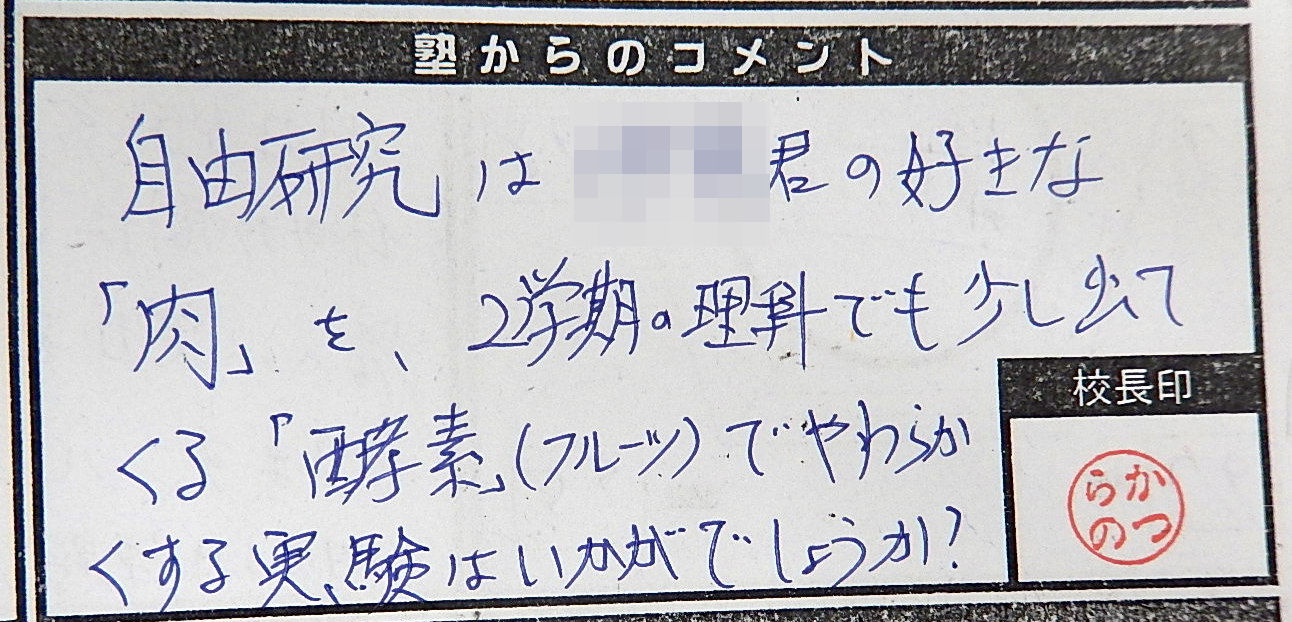 塾からのコメント
自由研究は 君の好きな
「肉」を、2学期の理科でも少し出て
くる「酵素」(フルーツ)でやわらか
くする実験はいかがでしょうか?
校長印
かつ
らの